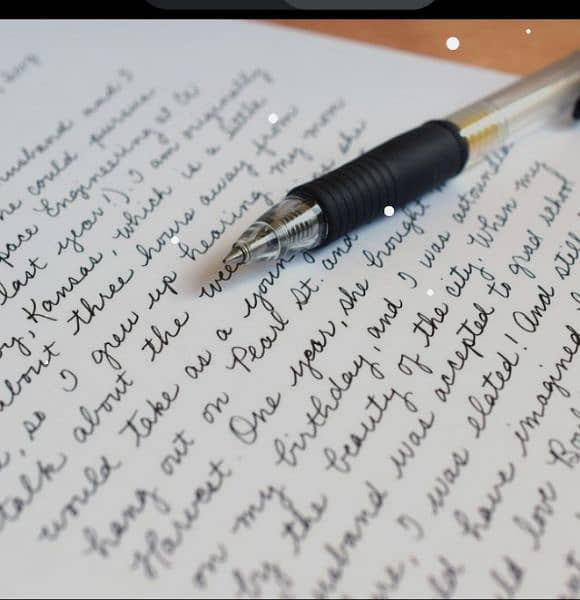 usband and I
he could pursue
pace Engineering at
last year!) I am originally
y, Kansas, which is a little
about three hours away from
, so I grew up hearing my mom
talk about the wee she
would take as a youn
hang out on Pearl St. and
Harvest. One year, she brought
on my birthday, and I was astounde
by the beauty of the city. When my
usband was accepted to grad school
re, I was elated! And still
ld have imagined
ld love Boul